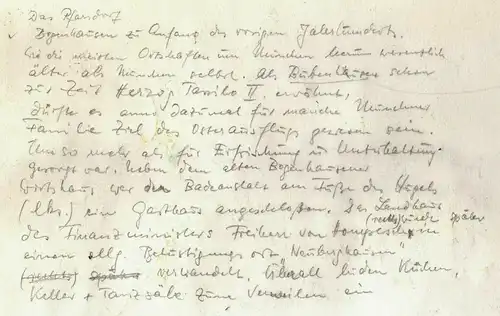 Das Pfarrdorf
Bogenhausen zu Anfang des vorigen Jahrhunderts.
Wie die meisten Ortschaften um München kaum wesentlich
älter als München selbst. Als Bubenhausen schon
zur Zeit Herzog Tassilo II. erwähnt,
dürfte es anno dazumal für manche Münchner
Familie Ziel des Osterausflugs gewesen sein.
Um so mehr als für Erfrischung u Unterhaltung
gesorgt war. Neben dem alten Bogenhausener
Wirtshaus war der Badeanstalt am Fuße des Hügels
(lks.) ein Gasthaus angeschlossen. Das Landhaus
(rechts) wurde später
des Finanzministers Freiherr von Hompesch in
einen allg. Belustigungsort "Neuberghausen"
(rechts) später verwandelt. Überall luden Küchen,
Keller + Tanzsäle zum Verweilen ein